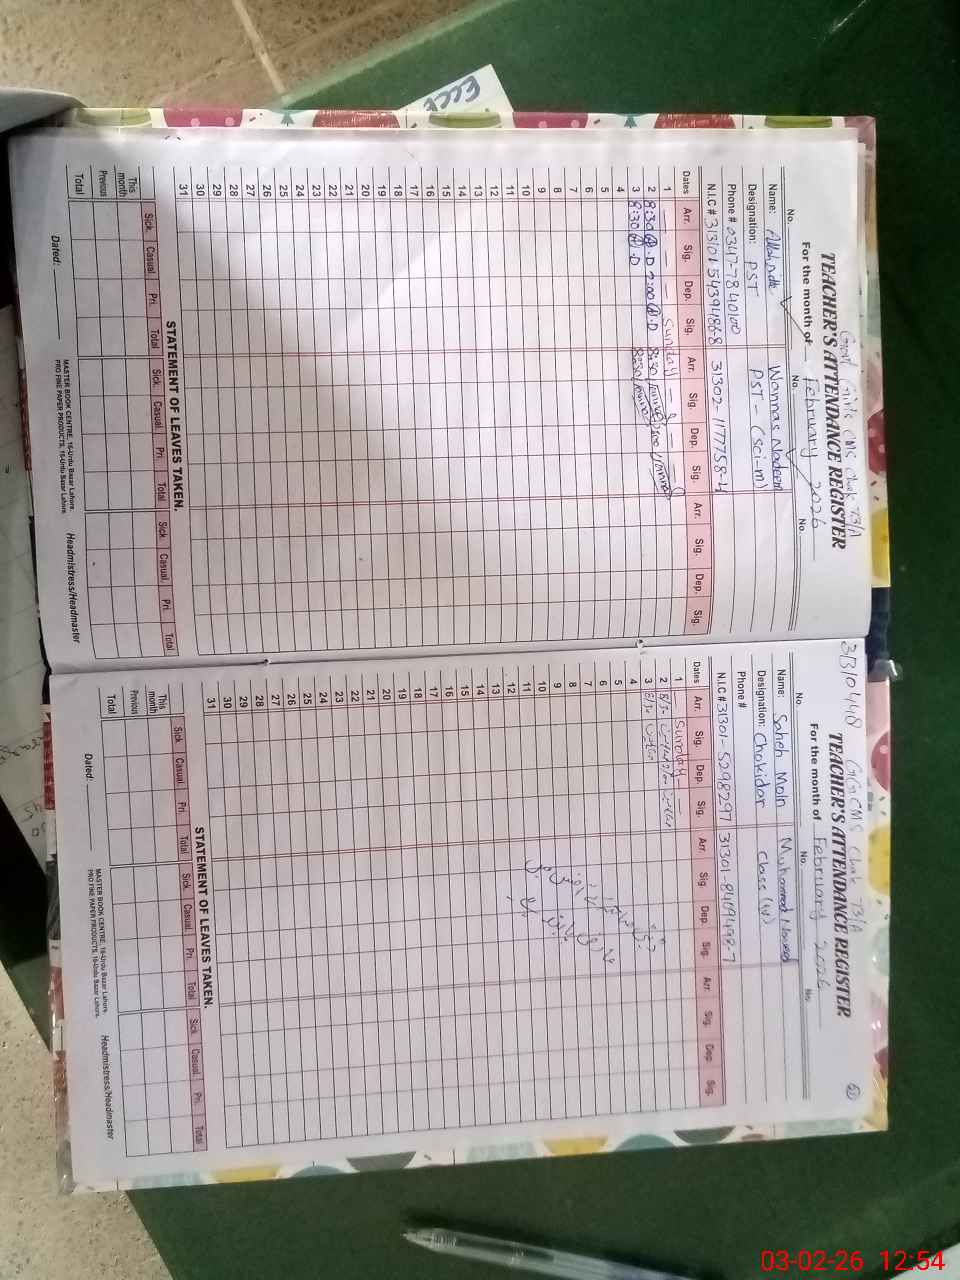 Govt Girls CMS Chak 73/A
TEACHER'S ATTENDANCE REGISTER
For the month of February 2026
No. No. No.
Name: Wannas Nadeem
Designation: PST PST - (Sci-m)
Phone # 0347-7840100
N.I.C # 31302-1177758-4
Dates Arr. Sig. Dep. Sig. Arr. Sig. Dep. Sig. Arr. Sig. Dep. Sig.
1 Sunday
2 8:30 A.D 2:00 A.D 8:30
3 8:30 A.D 8:30
4
5
6
7
8
9
10
11
12
13
14
15
16
17
18
19
20
21
22
23
24
25
26
27
28
29
30
31
STATEMENT OF LEAVES TAKEN.
Sick. Casual. Pri. Total Sick. Casual. Pri. Total Sick. Casual. Pri. Total
This month
Previous
Total
Dated: Headmistress/Headmaster
MASTER BOOK CENTRE, 16-Urdu Bazar Lahore.
PRO FINE PAPER PRODUCTS, 16-Urdu Bazar Lahore.
31310448 GGCMS Chak 73/A
TEACHER'S ATTENDANCE REGISTER
For the month of February 2026
No. No. No.
Name: Muhammad
Designation: Chokidar Class (iv)
Phone #
N.I.C # 31301-5298297 31301-8409498-7
Dates Arr. Sig. Dep. Sig. Arr. Sig. Dep. Sig. Arr. Sig. Dep. Sig.
1 Sunday
2 8/30
3 8/30
4
5
6
7
8
9
10
11
12
13
14
15
16
17
18
19
20
21
22
23
24
25
26
27
28
29
30
31
STATEMENT OF LEAVES TAKEN.
Sick Casual. Pri. Total Sick. Casual. Pri. Total Sick. Casual. Pri. Total
This month
Previous
Total
Dated: Headmistress/Headmaster
MASTER BOOK CENTRE, 16-Urdu Bazar Lahore.
PRO FINE PAPER PRODUCTS, 16-Urdu Bazar Lahore.
03-02-26 12:54